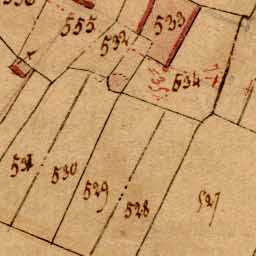 555
532
533
534
531
530
529
528
527